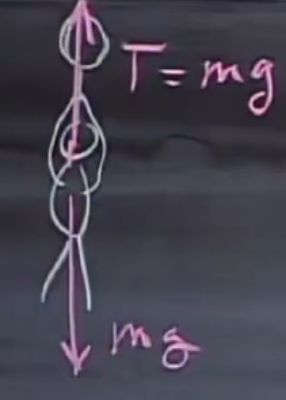 T = mg
mg